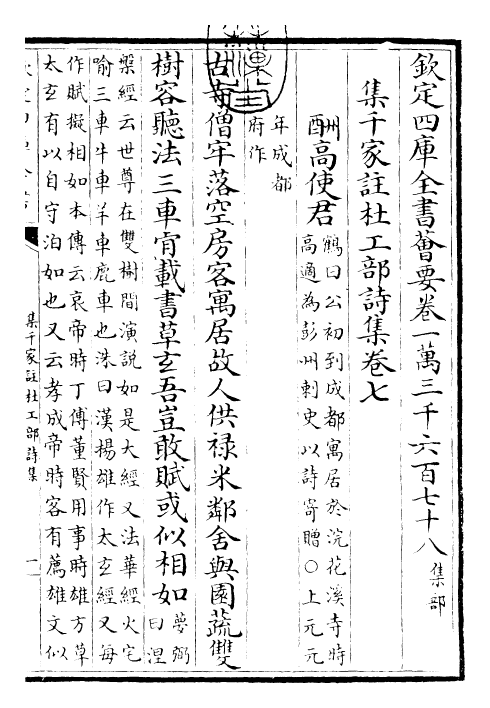 欽定四庫全書薈要卷一萬三千六百七十八 集部
集千家註杜工部詩集卷七
酬高使君 鶴曰公初到成都寓居於浣花溪寺時
高適為彭州刺史以詩寄贈○上元元
年成都
府作
古寺僧牢落空房客寓居故人供祿米鄰舍與園蔬雙
樹容聽法三車肯載書草玄吾豈敢賦或似相如 夢弼
曰涅
槃經云世尊在雙樹間演說如是大經又法華經火宅
喻三車牛車羊車鹿車也洙曰漢楊雄作太玄經又每
作賦擬相如本傳云哀帝時丁傅董賢用事時雄方草
太玄有以自守泊如也又云孝成帝時客有薦雄文似
集千家註杜工部詩集
一